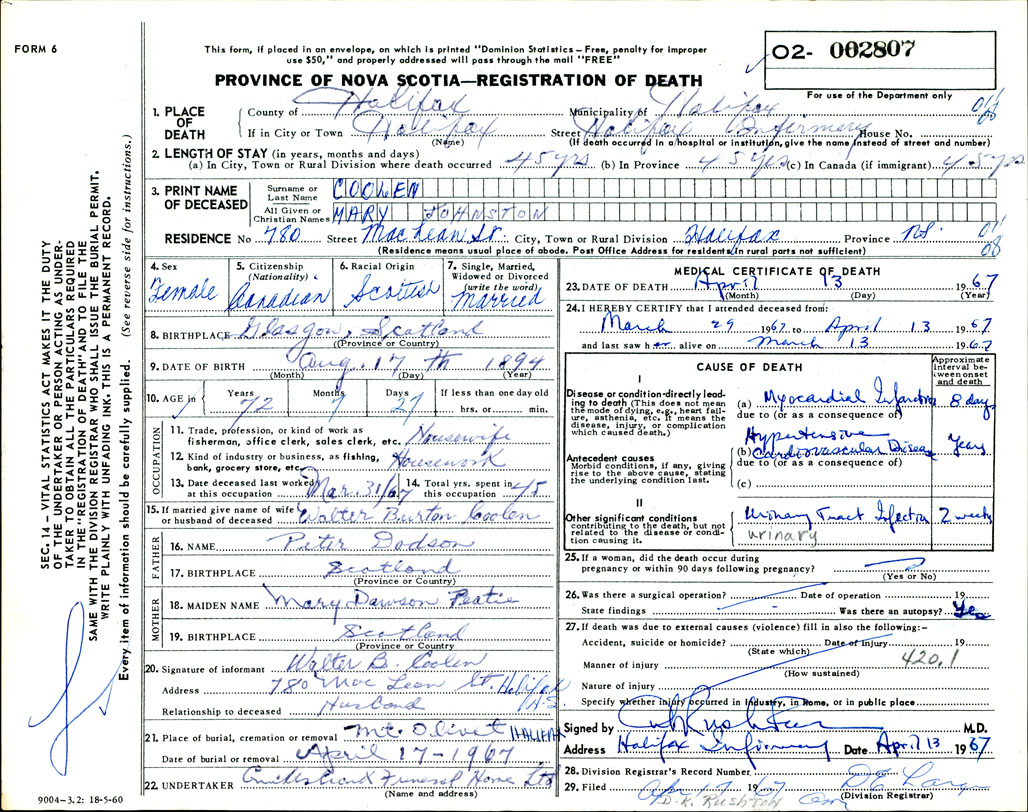 FORM 6
This form, if placed in an envelope, on which is printed "Dominion Statistics – Free, penalty for improper
use $50," and properly addressed will pass through the mail "FREE"
O2- 002807
For use of the Department only
PROVINCE OF NOVA SCOTIA—REGISTRATION OF DEATH
SEC. 14 – VITAL STATISTICS ACT MAKES IT THE DUTY
OF THE UNDERTAKER OR PERSON ACTING AS UNDER-
TAKER TO OBTAIN ALL THE PARTICULARS REQUIRED
IN THE "REGISTRATION OF DEATH" AND TO FILE THE
SAME WITH THE DIVISION REGISTRAR WHO SHALL ISSUE THE BURIAL PERMIT.
WRITE PLAINLY WITH UNFADING INK. THIS IS A PERMANENT RECORD.
Every item of information should be carefully supplied. (See reverse side for instructions.)
1. PLACE OF DEATH County of Halifax Municipality of Halifax
If in City or Town Halifax Street Halifax Infirmary House No.
(Name) (If death occurred in a hospital or institution, give the name instead of street and number)
2. LENGTH OF STAY (in years, months and days)
(a) In City, Town or Rural Division where death occurred 45 yrs (b) In Province 45 yrs (c) In Canada (if immigrant) 45 yrs
3. PRINT NAME OF DECEASED Surname or Last Name COOLEN
All Given or Christian Names MARY JOHNSTON
RESIDENCE No 780 Street MacLean St. City, Town or Rural Division Halifax Province NS.
(Residence means usual place of abode. Post Office Address for residents in rural parts not sufficient)
4. Sex Female
5. Citizenship (Nationality) Canadian
6. Racial Origin Scottish
7. Single, Married, Widowed or Divorced (write the word) Married
8. BIRTHPLACE Glasgow, Scotland
(Province or Country)
9. DATE OF BIRTH Aug. 17th 1894
(Month) (Day) (Year)
10. AGE in Years 72 Months 7 Days 27 If less than one day old hrs. or min.
OCCUPATION
11. Trade, profession, or kind of work as
fisherman, office clerk, sales clerk, etc. Housewife
12. Kind of industry or business, as fishing,
bank, grocery store, etc. Housework
13. Date deceased last worked at this occupation Mar. 31/67 14. Total yrs. spent in this occupation 45
15. If married give name of wife or husband of deceased Walter Burton Coolen
FATHER
16. NAME Peter Dodson
17. BIRTHPLACE Scotland
(Province or Country)
MOTHER
18. MAIDEN NAME Mary Dawson Peatie
19. BIRTHPLACE Scotland
(Province or Country
20. Signature of informant Walter B. Coolen
Address 780 MacLean St. Halifax N.S.
Relationship to deceased Husband
21. Place of burial, cremation or removal Mt. Olivet HALIFAX
Date of burial or removal April 17-1967
22. UNDERTAKER Cruikshank's Funeral Home Ltd
(Name and address)
9004–3.2: 18-5-60
MEDICAL CERTIFICATE OF DEATH
23. DATE OF DEATH April 13 1967
(Month) (Day) (Year)
24. I HEREBY CERTIFY that I attended deceased from:
March 29 1967 to April 13 1967
and last saw her alive on March 13 1967
CAUSE OF DEATH
Approximate interval between onset and death
I
Disease or condition directly leading to death (This does not mean the mode of dying, e.g., heart failure, asthenia, etc. It means the disease, injury, or complication which caused death.)
(a) Myocardial Infarction 8 days
due to (or as a consequence of)
Antecedent causes
Morbid conditions, if any, giving rise to the above cause, stating the underlying condition last.
(b) Hypertensive Cardiovascular Disease Years
due to (or as a consequence of)
(c)
II
Other significant conditions
contributing to the death, but not related to the disease or condition causing it.
Urinary Tract Infection 2 weeks
urinary
25. If a woman, did the death occur during
pregnancy or within 90 days following pregnancy?
(Yes or No)
26. Was there a surgical operation? Date of operation 19
State findings Was there an autopsy? Yes
27. If death was due to external causes (violence) fill in also the following:–
Accident, suicide or homicide? Date of injury 19
(State which)
420.1
Manner of injury
(How sustained)
Nature of injury
Specify whether injury occurred in industry, in home, or in public place
Signed by Rushton M.D.
Address Halifax Infirmary Date April 13 1967
28. Division Registrar's Record Number
29. Filed Apr. 17 1967
D.K. RUSHTON
(Division Registrar)